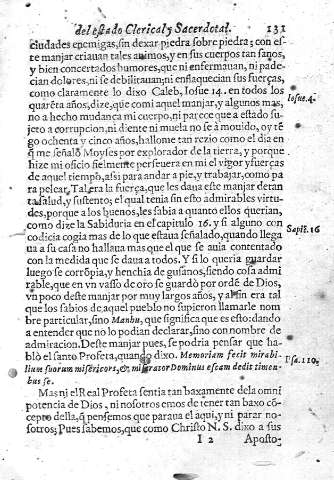 del estado Clerical, y Sacerdotal. 131
ciudades enemigas, sin dexar piedra sobre piedra; con es-
te manjar criauan tales animos, y en sus cuerpos tan sanos,
y bien concertados humores, que ni enfermauan, ni pade-
cian dolores, ni se debilitauan; ni enflaquecian sus fuerças,
como claramente lo dixo Caleb, Iosue 14. en todos los
quarēta años, dize, que comi aquel manjar, y algunos mas,
no a hecho mudança mi cuerpo, ni parece que a estado su-
jeto a corrupcion, ni diente ni muela no se à mouido, oy tē-
go ochenta y cinco años, hallome tan rezio como el dia en
q̄ me señalò Moyses por explorador de la tierra, y porque
hize mi oficio fielmente perseuera en mi el vigor y fuerças
de aquel tiempo, assi para andar a pie, y trabajar, como pa
ra pelear. Tal era la fuerça, que les daua este manjar de tan
ta salud, y sustento; el qual tenia sin esto admirables virtu-
des, porque a los buenos, les sabia a quanto ellos querian,
como dize la Sabiduria en el capitulo 16. y si alguno con
codicia cogia mas de lo que estaua señalado, quando llega
ua a su casa no hallaua mas que el que se auia contentado
con la medida que se daua a todos. Y si lo queria guardar
luego se corrōpia, y henchia de gusanos, siendo cosa admi
rable, que en vn vasso de oro se guardò por ordē de Dios,
vn poco deste manjar por muy largos años, y al fin era tal
que los sabios de aquel pueblo no supieron llamarle nom
bre particular, sino Manhu, que significa que es esto: dando
a entender que no lo podian declarar, sino con nombre de
admiracion. Deste manjar pues, se podria pensar que ha-
blò el santo Profeta, quando dixo. Memoriam fecit mirabi-
lium suorum misericors, & miserator Dominus escam dedit timen-
bus se.
Iosue 4.
Sapiē. 16
Psa. 110.
Mas ni el Real Profeta sentia tan baxamente dela omni
potencia de Dios, ni nosotros emos de tener tan baxo cō-
cepto della, q̄ pensemos que paraua el aqui, y ni parar no-
sotros; Pues sabemos, que como Christo N. S. dixo a sus
I 2 Aposto-